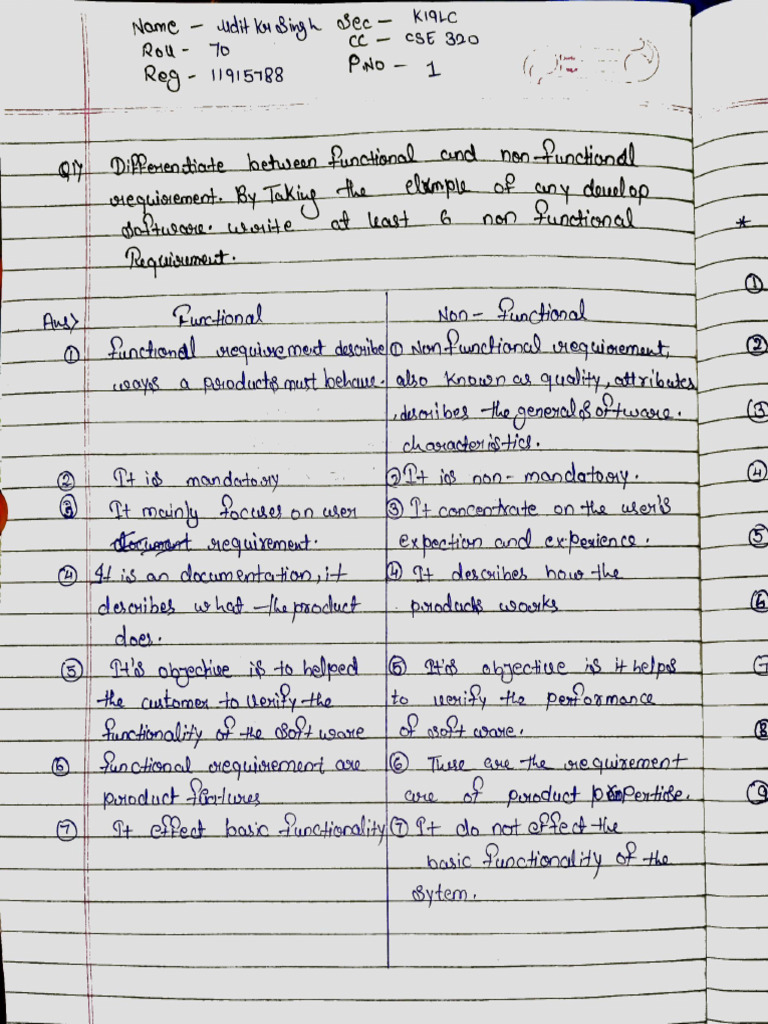 Name - Udit Kr Singh Sec - K19LC
Roll - 70 CC - CSE 320
Reg - 11915788 P.NO - 1
Q1) Differenctiate between functional and non-functional
requirement. By Taking the exmple of any develop
software. write at least 6 non functional
Requirement.
Ans) Functional
① functional requirement describe
ways a products must behave.
② It is mandatory
③ It mainly focuses on user
requirement.
④ It is an documentation, it
describes what the product
does.
⑤ It's objective is to helped
the customer to verify the
functionality of the software
⑥ functional requirement are
product features
⑦ It effect basic functionality
Non - functional
① Non functional requirement,
also known as quality, attributes
, describes the general software.
characteristics.
② It is non-mandatory.
③ It concentrate on the user's
expection and experience.
④ It describes how the
products works
⑤ It's objective is it helps
to verify the performance
of software.
⑥ These are the requirement
are of product propertise.
⑦ It do not effect the
basic functionality of the
sytem.
*
①
②
③
④
⑤
⑥
⑦
⑧
⑨